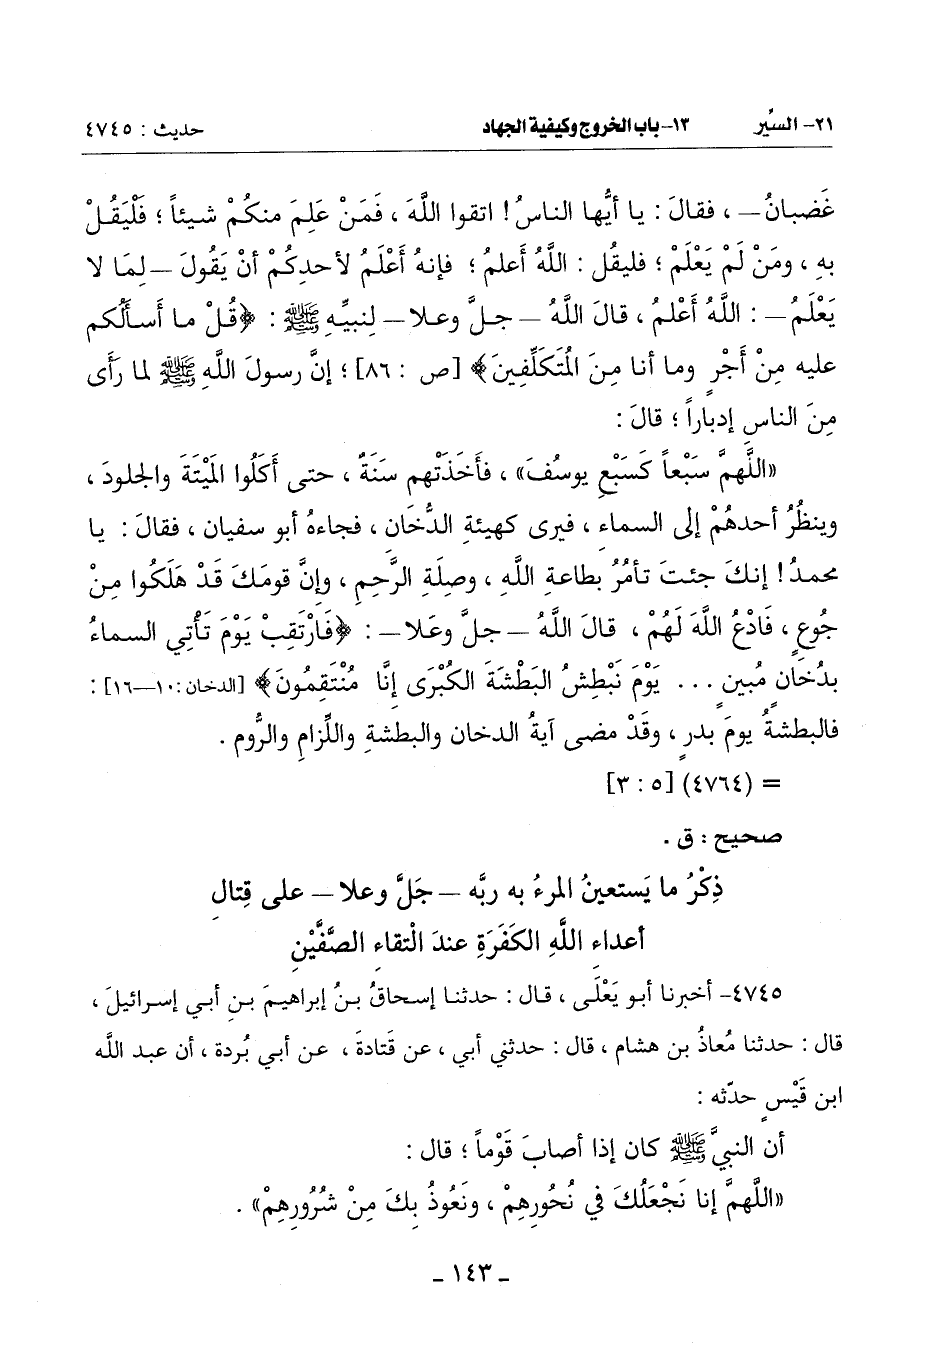 ٢١- السِّير ١٣-باب الخروج وكيفية الجهاد حديث : ٤٧٤٥
غَضبانُ – ، فقالَ : يا أيُّها الناسُ! اتقوا اللَّهَ ، فَمَنْ عَلِمَ منكمْ شيئاً ؛ فَلْيَقُلْ
بهِ ، ومَنْ لَمْ يَعْلَمْ ؛ فليقُل : اللَّهُ أعلمُ ؛ فإنهُ أَعْلَمُ لأحدِكُمْ أنْ يَقُولَ –لِمَا لا
يَعْلَمُ– : اللَّهُ أَعْلمُ ، قالَ اللهُ –جلَّ وعلا– لِنبيِّهِ ﷺ : ﴿قُلْ ما أسألُكم
عليه مِنْ أَجْرٍ وما أنا مِنَ المُتَكَلِّفِينَ﴾ [ص : ٨٦] ؛ إنَّ رسولَ اللَّهِ ﷺ لما رَأَى
مِنَ الناسِ إدباراً ؛ قالَ :
«اللَّهمَّ سَبْعاً كَسَبْعِ يوسُفَ» ، فأخَذَتْهم سَنَةٌ ، حتى أَكَلُوا المَيْتَةَ والجلودَ ،
وينظُرُ أحدهُمْ إلى السماءِ ، فيرى كهيئةِ الدُّخَان ، فجاءهُ أبو سفيان ، فقالَ : يا
محمدُ! إنكَ جئتَ تأمُرُ بطاعةِ اللَّهِ ، وصِلَةِ الرَّحِمِ ، وإنَّ قومَكَ قَدْ هَلَكُوا مِنْ
جُوعٍ ، فَادْعُ اللَّهَ لَهُمْ ، قالَ اللَّهُ –جلَّ وعَلا– : ﴿فَارْتَقِبْ يَوْمَ تَأْتي السماءُ
بدُخَانٍ مُبينٍ ... يَوْمَ نَبْطِشُ البَطْشَةَ الكُبْرَى إنَّا مُنْتَقِمُونَ﴾ [الدخان:١٠–١٦] :
فالبطشةُ يومَ بدرٍ ، وقَدْ مضى آيةُ الدخان والبطشةِ واللِّزامِ والرُّوم .
= (٤٧٦٤) [٥ : ٣]
صحيح : ق .
ذِكْرُ ما يَستعينُ المرءُ به ربَّه –جَلَّ وعلا– على قِتالِ
أعداءِ اللَّهِ الكَفَرَةِ عندَ الْتقاءِ الصَّفَّيْنِ
٤٧٤٥- أخبرنا أبو يَعْلَى ، قال : حدثنا إسحاقُ بنُ إبراهيمَ بنِ أبي إسرائيلَ ،
قال : حدثنا مُعاذُ بن هشام ، قال : حدثني أبي ، عن قَتادةَ ، عن أبي بُردة ، أن عبد الله
ابن قَيْسٍ حدّثه :
أن النبيَّ ﷺ كان إذا أصابَ قَوْماً ؛ قال :
«اللَّهمَّ إنا نَجْعَلُكَ في نُحُورِهِمْ ، ونَعُوذُ بِكَ مِنْ شُرُورِهِمْ» .
- ١٤٣ -